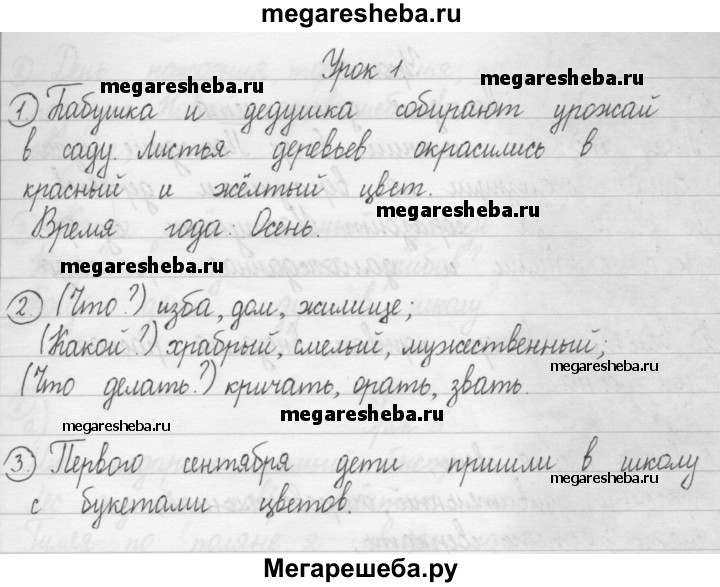 megaresheba.ru
Урок 1.
megaresheba.ru megaresheba.ru
1) Бабушка и дедушка собирают урожай
в саду. Листья деревьев окрасились в
красный и жёлтый цвет.
megaresheba.ru
Время года: Осень.
megaresheba.ru
2) (Что?) изба, дом, жилище;
(Какой?) храбрый, смелый, мужественный;
megaresheba.ru
(Что делать?) кричать, орать, звать.
megaresheba.ru megaresheba.ru
3) Первого сентября дети пришли в школу
megaresheba.ru
с букетами цветов.
Мегарешеба.ру